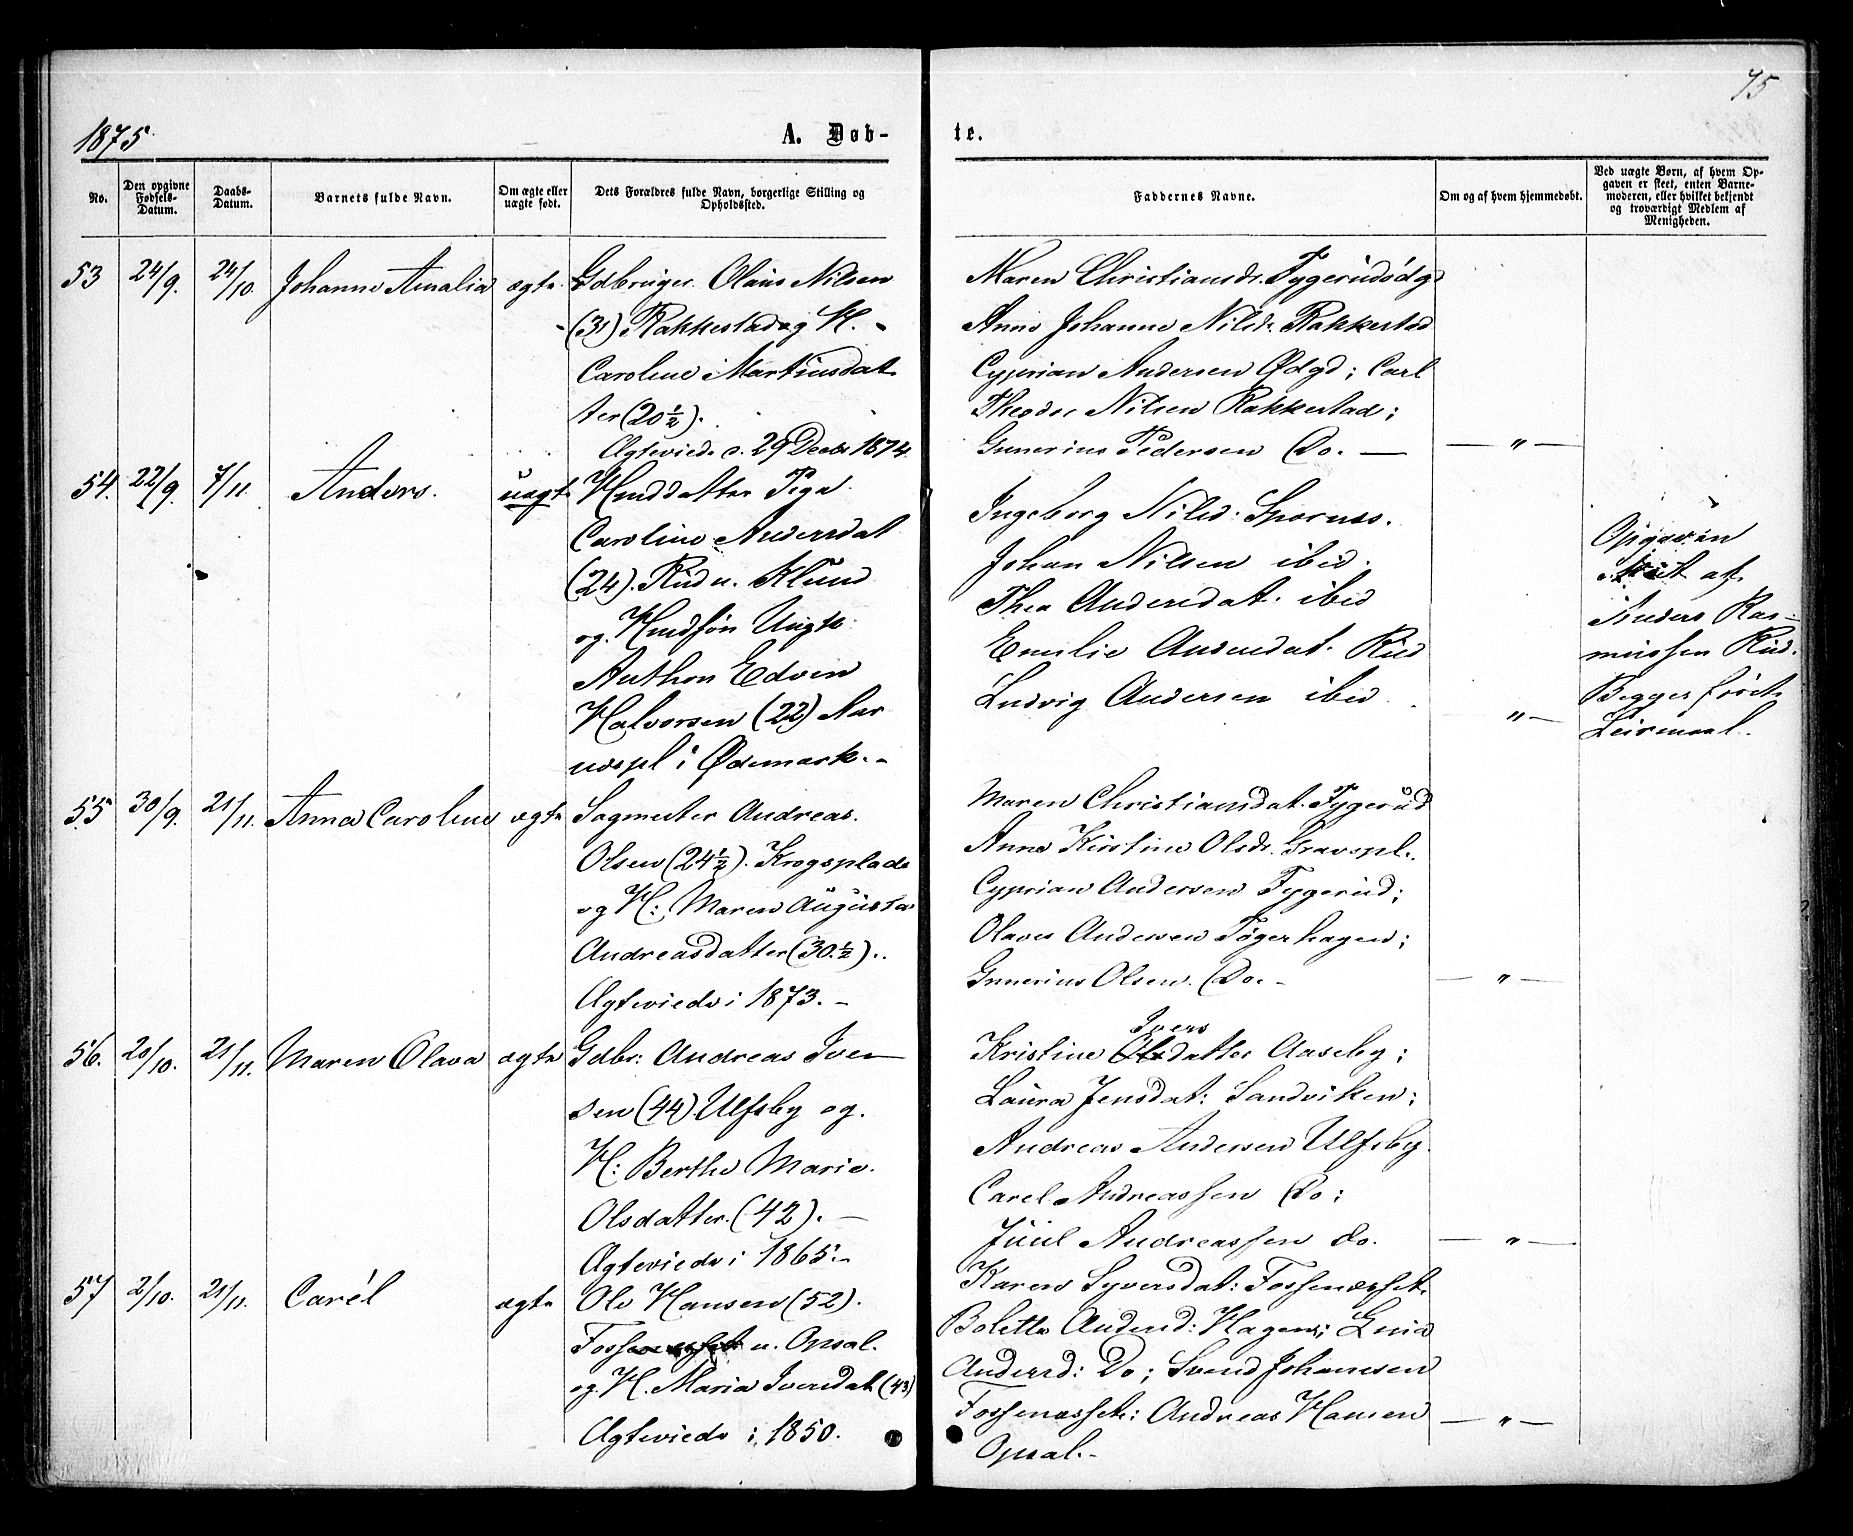 75
1875
A. Døb-
te.
No.
Den opgivne Fødsels-Datum.
Daabs-Datum.
Barnets fulde Navn.
Om ægte eller uægte født.
Dets Forældres fulde Navn, borgerlige Stilling og Opholdssted.
Faddernes Navne.
Om og af hvem hjemmedøbt.
Ved uægte Børn, af hvem Op-
gaven er skeet, enten Barne-
moderen, eller hvilket bekjendt
og troværdigt Medlem af
Menigheden.
53 24/9. 24/10. Johanne Amalia ægte.
Gdbruger Olaus Nilsen
(31) Rakkestad og H.
Caroline Martinsdat
ter (20 1/2).
Ægteviede d. 29 Decbr 1874
Maren Christiansdr. Tygerudødg
Anne Johanne Nilsdr. Rakkestad
Cyprian Andersen Ødgd; Carl
Theodor Nilsen Rakkestad;
Gunerius Pedersen Do. — — „ —
54. 22/9. 7/11. Anders. uægte
Husdatter Pige
Caroline Andersdat
(24). Rud u. Klund
og Husesøn Ungk.
Anthon Edvin
Halvorsen (22)
udspl i Ødemark. -
Ingeborg Nilsd.
Johan Nilsen ibid.
Thea Andersdat. ibid
Emilie Andersdat. Rud
Ludvig Andersen ibid
„ —
Opgaven
skeet af
Anders Ras-
mussen Rud.
Begges første
Leiermaal.
55 30/9. 21/11. Anna Caroline ægte
Sagmester Andreas
Olsen (24 1/2). Krogsplads
og H: Maren Augusta
Andreasdatter (30 1/2).
Ægteviede i 1873. -
Maren Christiansdat. Tygerud
Anne Kirstine Olsdr. Gravspl.
Cyprian Andersen Tygerud;
Olaves Andersen Tøgerhagen;
Gunerius Olsen. Do. - — „ —
56. 20/10. 21/11. Maren Olava ægte
Gdbr: Andreas Iver-
sen (44) Ulfsby og
H: Berthe Marie
Olsdatter. (42). —
Ægteviede i 1865. -
Ivers
Kristine datter Aaseby;
Laura Jensdat: Sandviken;
Andreas Andersen Ulfsby.
Carel Andreassen Do;
Juul Andreassen do. — „ —
57 2/10. 21/11. Carél ægte
Ole Hansen (52).
u. Opsal.
og H. Maria Iversdat (43)
Ægteviede i 1850.
Karen Syversdat: Fossenæsset.
Bolette Andersd: Hagen;
Andersd: Do; Svend Johannesen
Fossenæsset; Andreas Hansen — „ —
Opsal. -